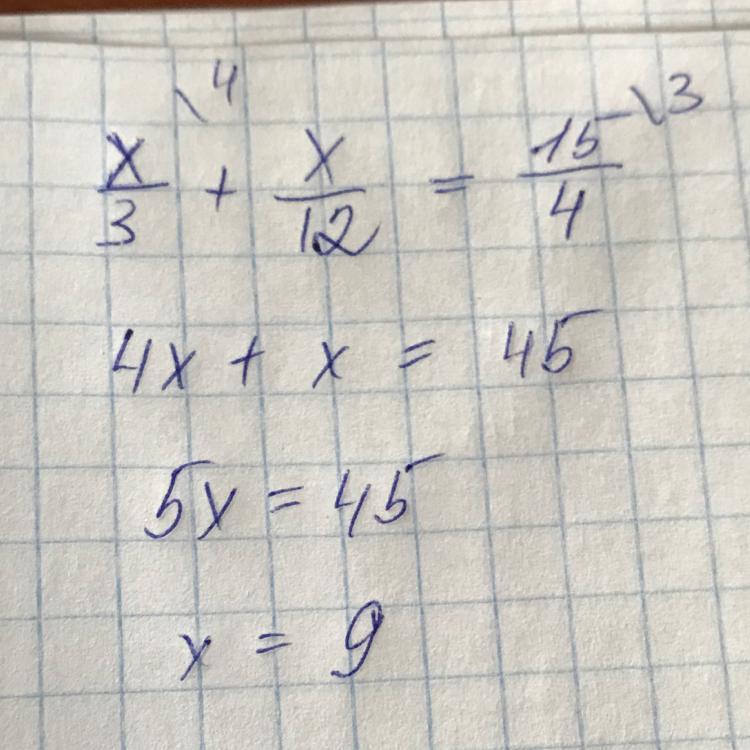 x/3 \4 + x/12 = 15/4 \3
4x + x = 45
5x = 45
x = 9